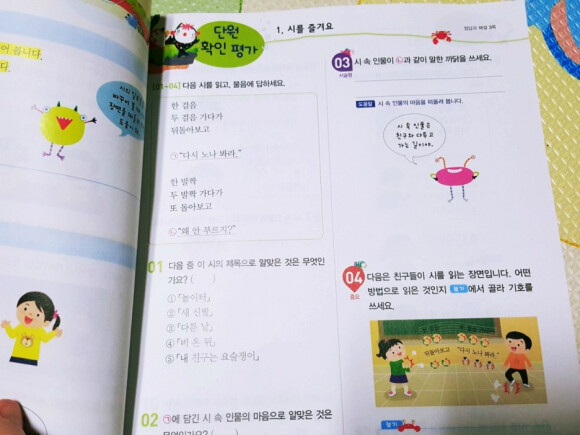 어 봅니다.
다.
단원
확인 평가
1. 시를 즐겨요
정답과 해설 3쪽
[01~04] 다음 시를 읽고, 물음에 답하세요.
한 걸음
두 걸음 가다가
뒤돌아보고
㉠“다시 노나 봐라.”
한 발짝
두 발짝 가다가
또 돌아보고
㉡“왜 안 부르지?”
01 다음 중 이 시의 제목으로 알맞은 것은 무엇인
가요? ( )
① 「놀이터」
② 「새 신발」
③ 「다툰 날」
④ 「비 온 뒤」
⑤ 「내 친구는 요술쟁이」
02 ㉠에 담긴 시 속 인물의 마음으로 알맞은 것은
무엇인가요? ( )
03 시 속 인물이 ㉡과 같이 말한 까닭을 쓰세요.
서술형
도움말 시 속 인물의 마음을 떠올려 봅니다.
시 속 인물은
친구와 다투고
가는 길이야.
04 다음은 친구들이 시를 읽는 장면입니다. 어떤
중요
방법으로 읽은 것인지 보기 에서 골라 기호를
쓰세요.
뒤돌아보고
“다시 노나 봐라.”
보기